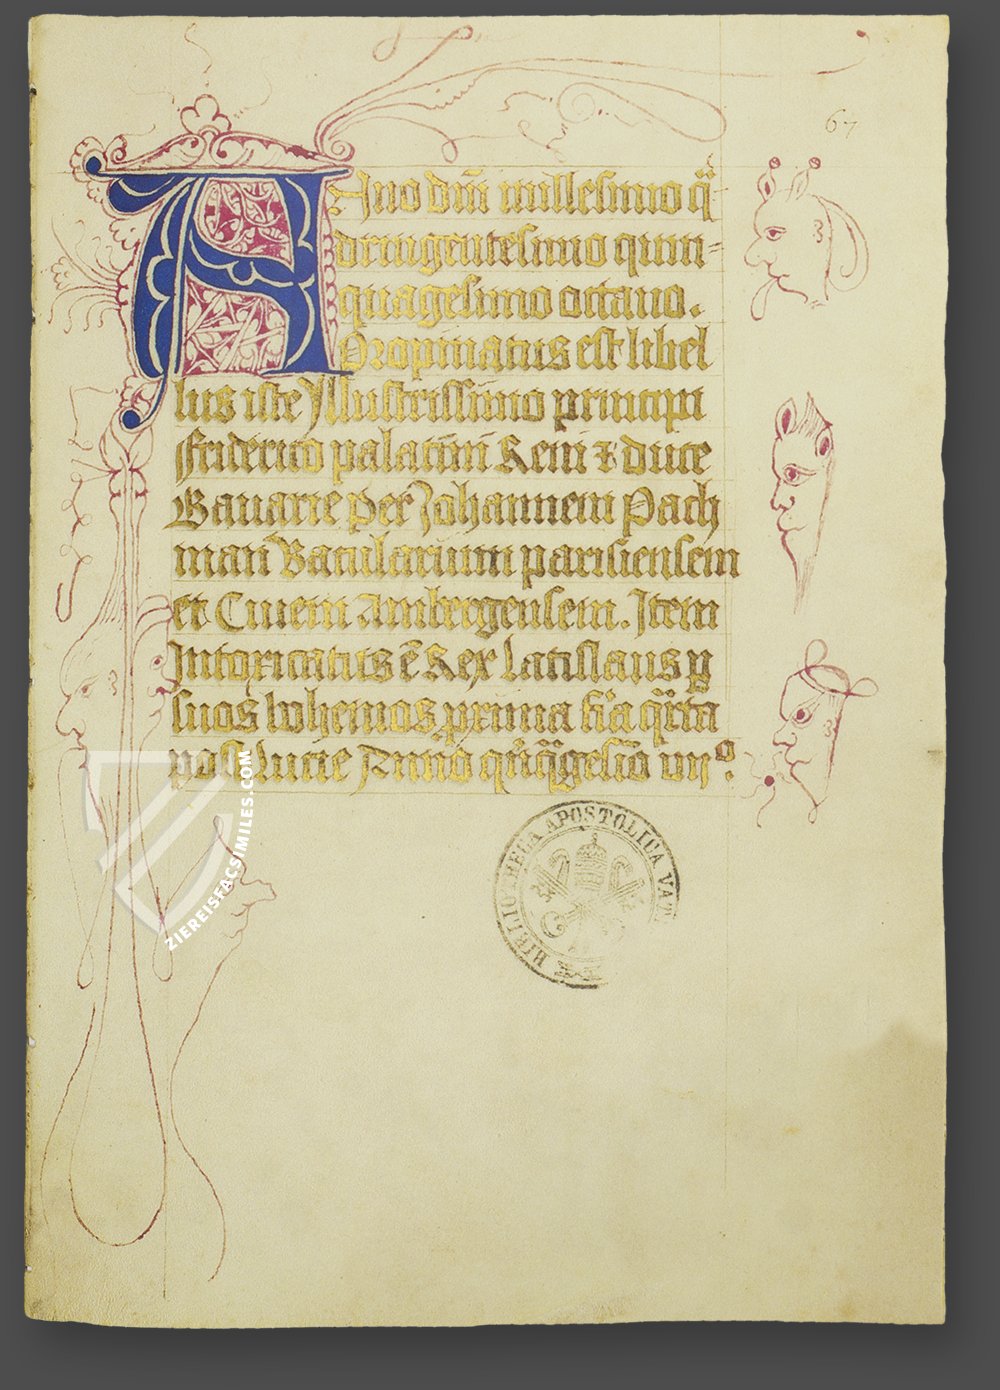 67
Anno dm̄ millesimo q̄
dringentesimo quin-
quagesimo octauo.
Propinatus est libel
lus iste Jllustrissimo principi
friderico palatini Reni & duce
Bauarie per Johannem Pach
man Bacularium parisiensem
et Ciuem Ambergensem. Jtem
Jntoxicatus ē Rex Latislaus ꝑ
suos bohemos prima
post Lucie Anno
BIBLIOTHECA APOSTOLICA VA
ZIEREISFACSIMILES.COM